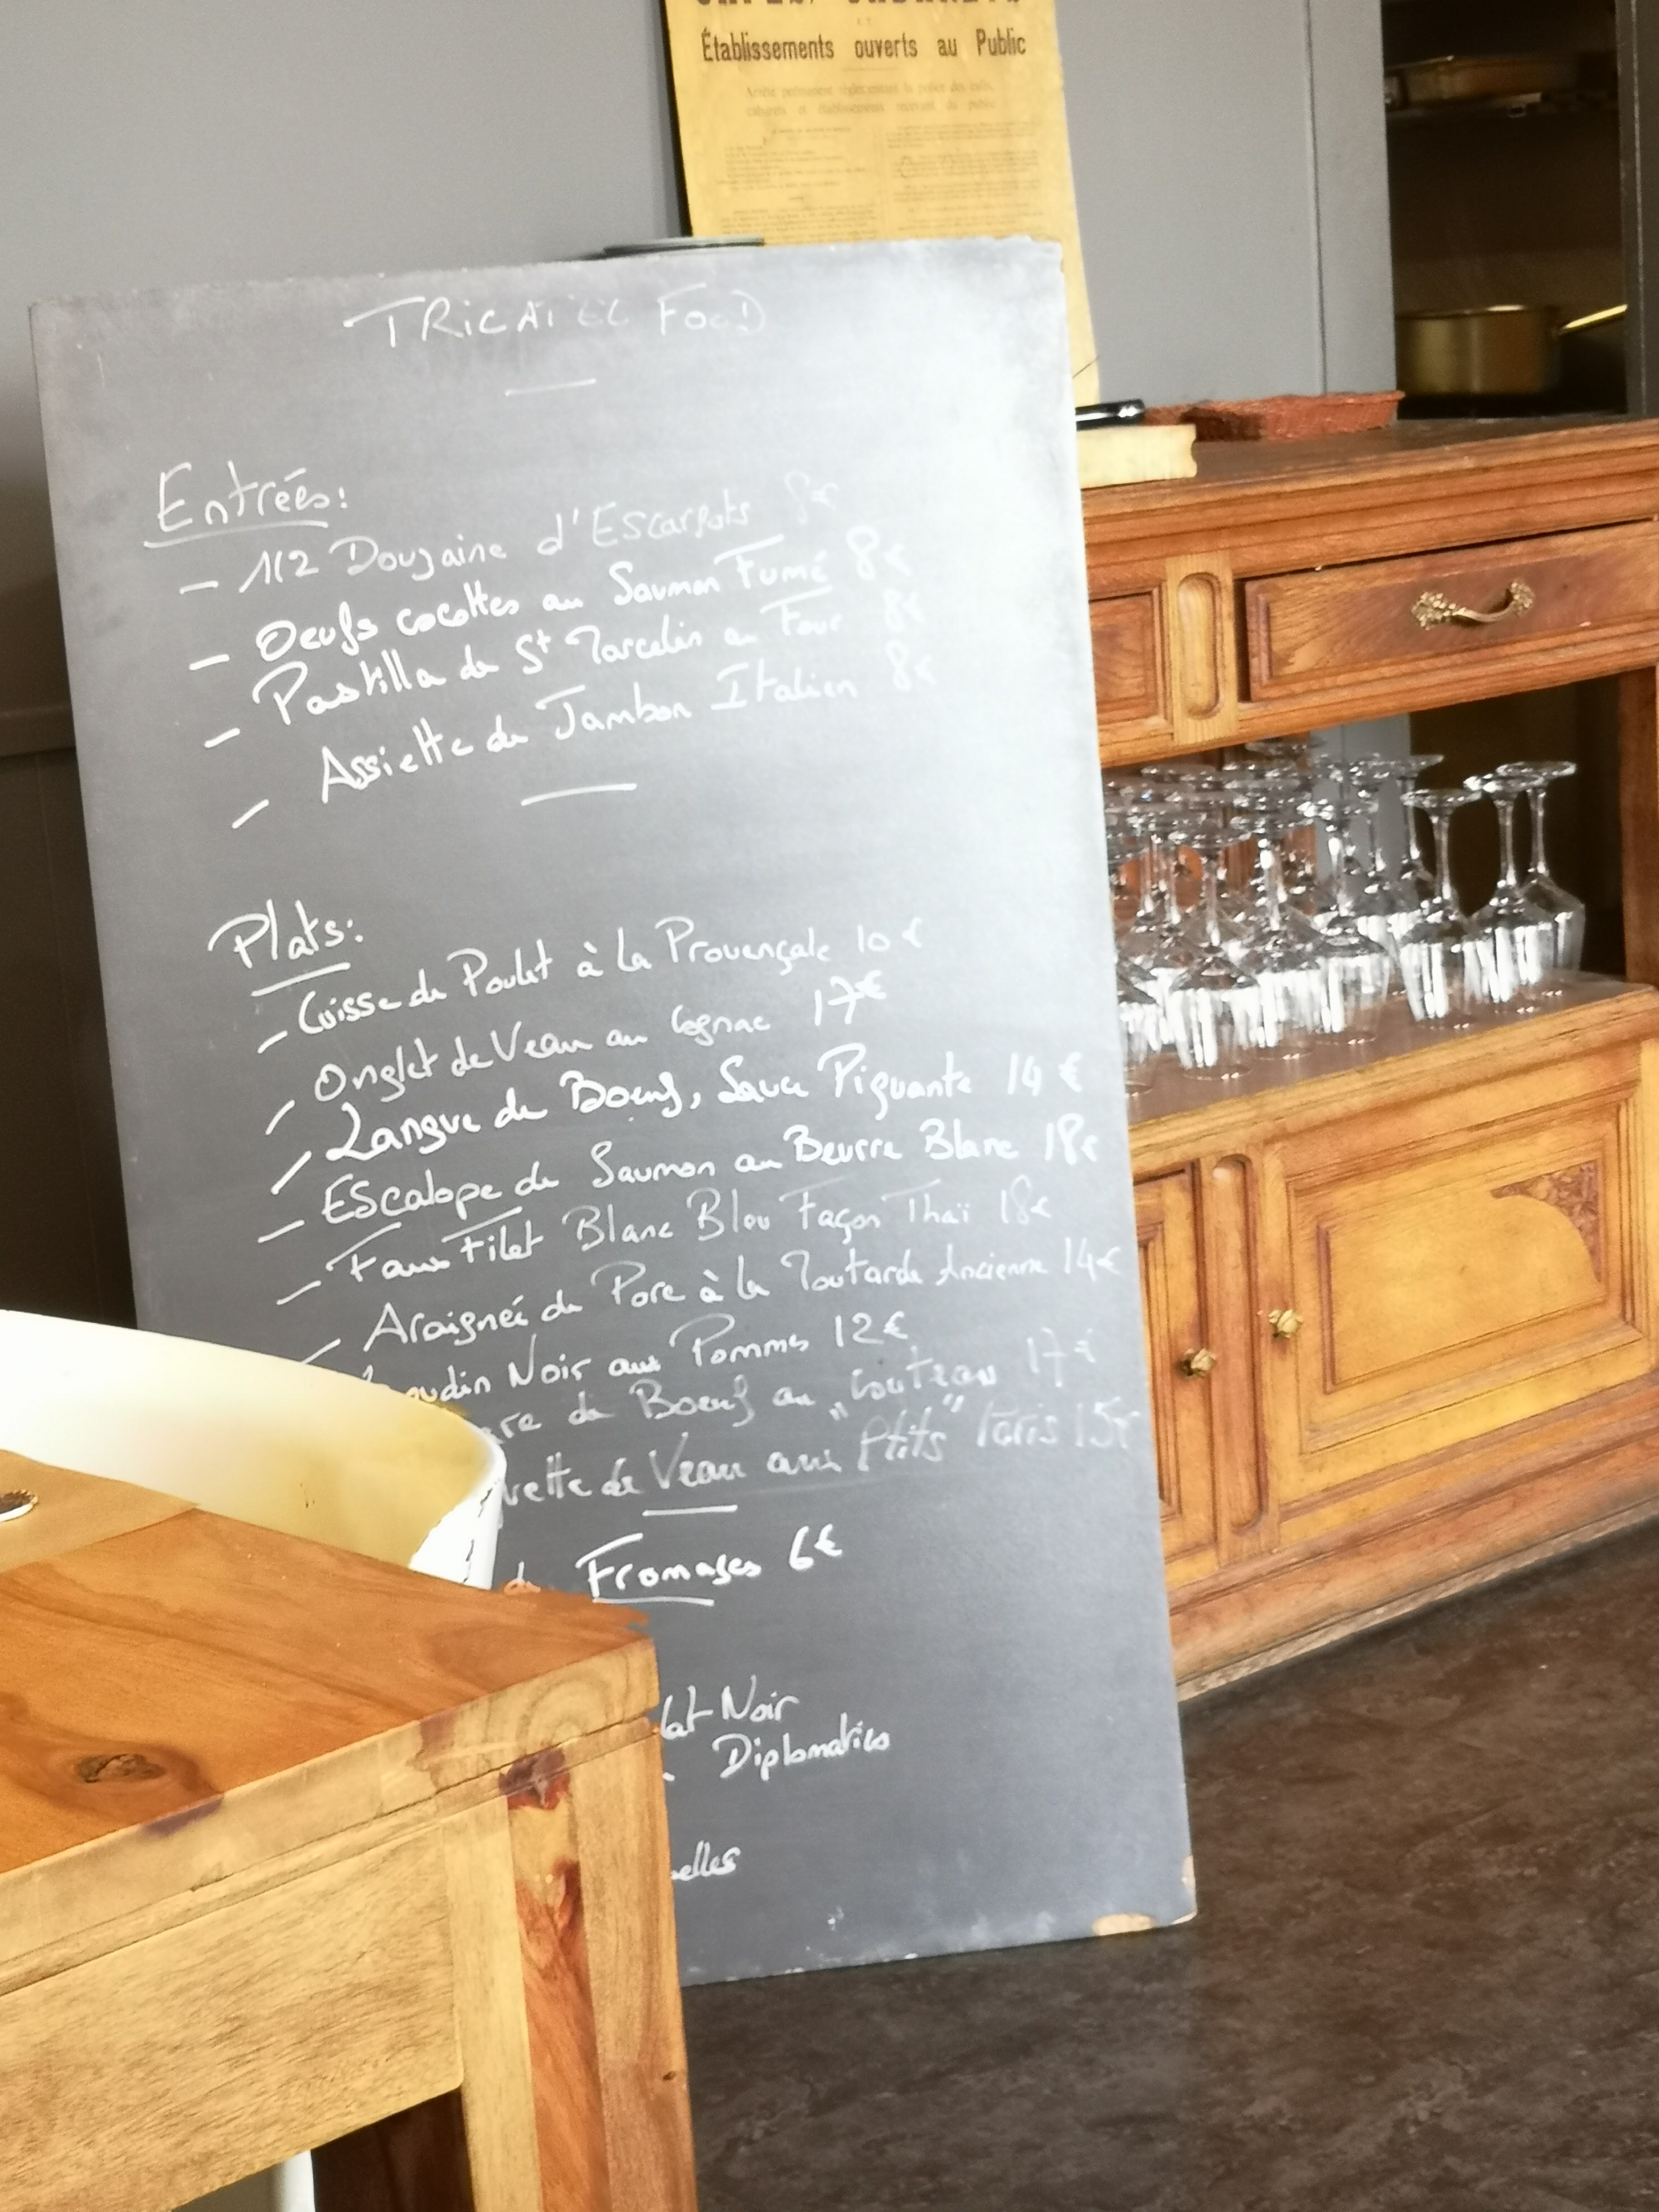 Établissements ouverts au Public
Arrêté permanent réglementant la police des cafés,
cabarets et établissements recevant du public
TRICATEL FOOD
Entrées:
- 1/2 Douzaine d'Escargots
- Oeufs cocottes au Saumon Fumé 8€
- Pastilla de St Marcelin au Four 8€
- Assiette de Jambon Italien 8€
Plats:
- Cuisse de Poulet à la Provençale 10 €
- Onglet de Veau au Cognac 17€
- Langue de Boeuf, Sauce Piquante 14 €
- Escalope de Saumon au Beurre Blanc 18€
- Faux Filet Blanc Bleu Façon Thaï 18€
- Araignée de Porc à la Moutarde Ancienne 14€
oudin Noir aux Pommes 12€
are de Boeuf au "Couteau 17€
vette de Veau aux Ptits" Paris 15€
de Fromages 6€
lat Noir
Diplomatico
elles